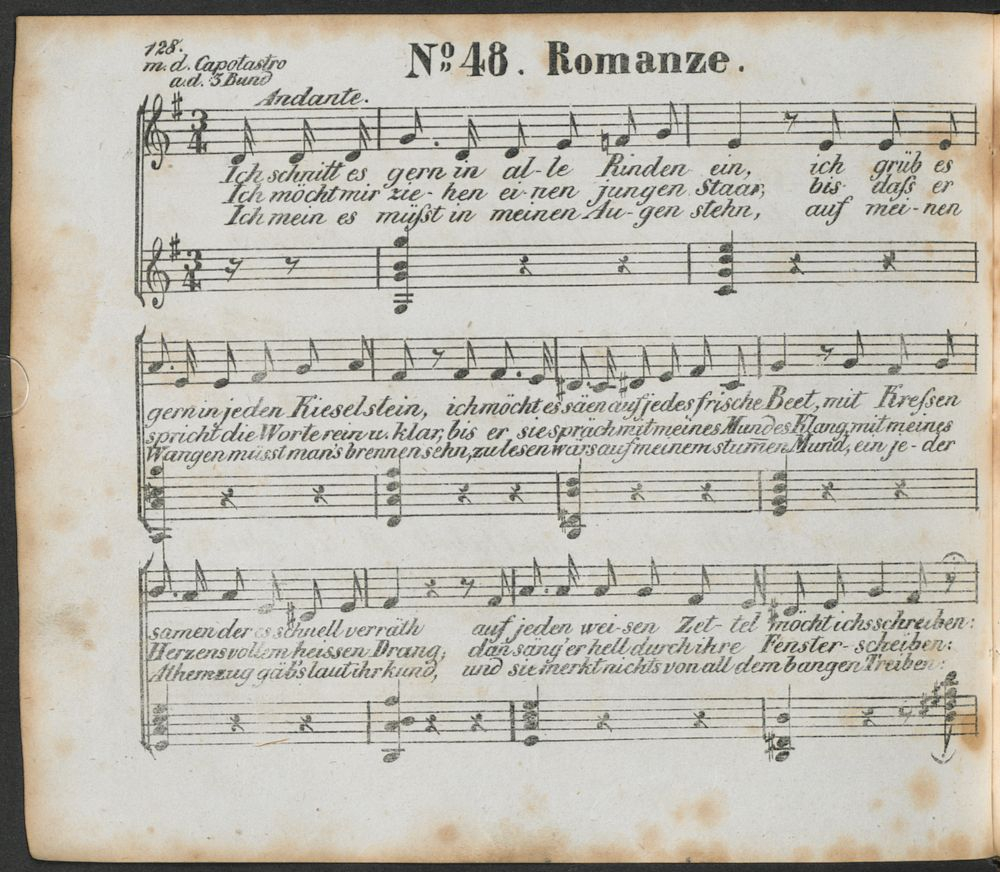 128.
No 48. Romanze.
m. d. Capotastro
a. d. 3 Bund
Andante.
Ich schnitt es gern in al-le Rinden ein, ich grüb es
Ich möcht mir zie-hen ei-nen jungen Staar, bis daß er
Ich mein es müßt in meinen Au-gen stehn, auf mei-nen
gern in jeden Kieselstein, ich möcht es säen auf jedes frische Beet, mit Kreßsen
spricht die Worte rein u. klar, bis er sie spräch mit meines Mundes Klang, mit meines
Wangen müsst man's brennen sehn, zu lesen wär's auf meinem stum̅en Mund, ein je-der
samen der es schnell verräth auf jeden wei-sen Zet-tel möcht ichs schreiben:
Herzens vollem heissen Drang; dan säng' er hell durch ihre Fenster-scheiben:
Athemzug gäb's laut ihr kund, und sie merkt nichts von all dem bangen Treiben: